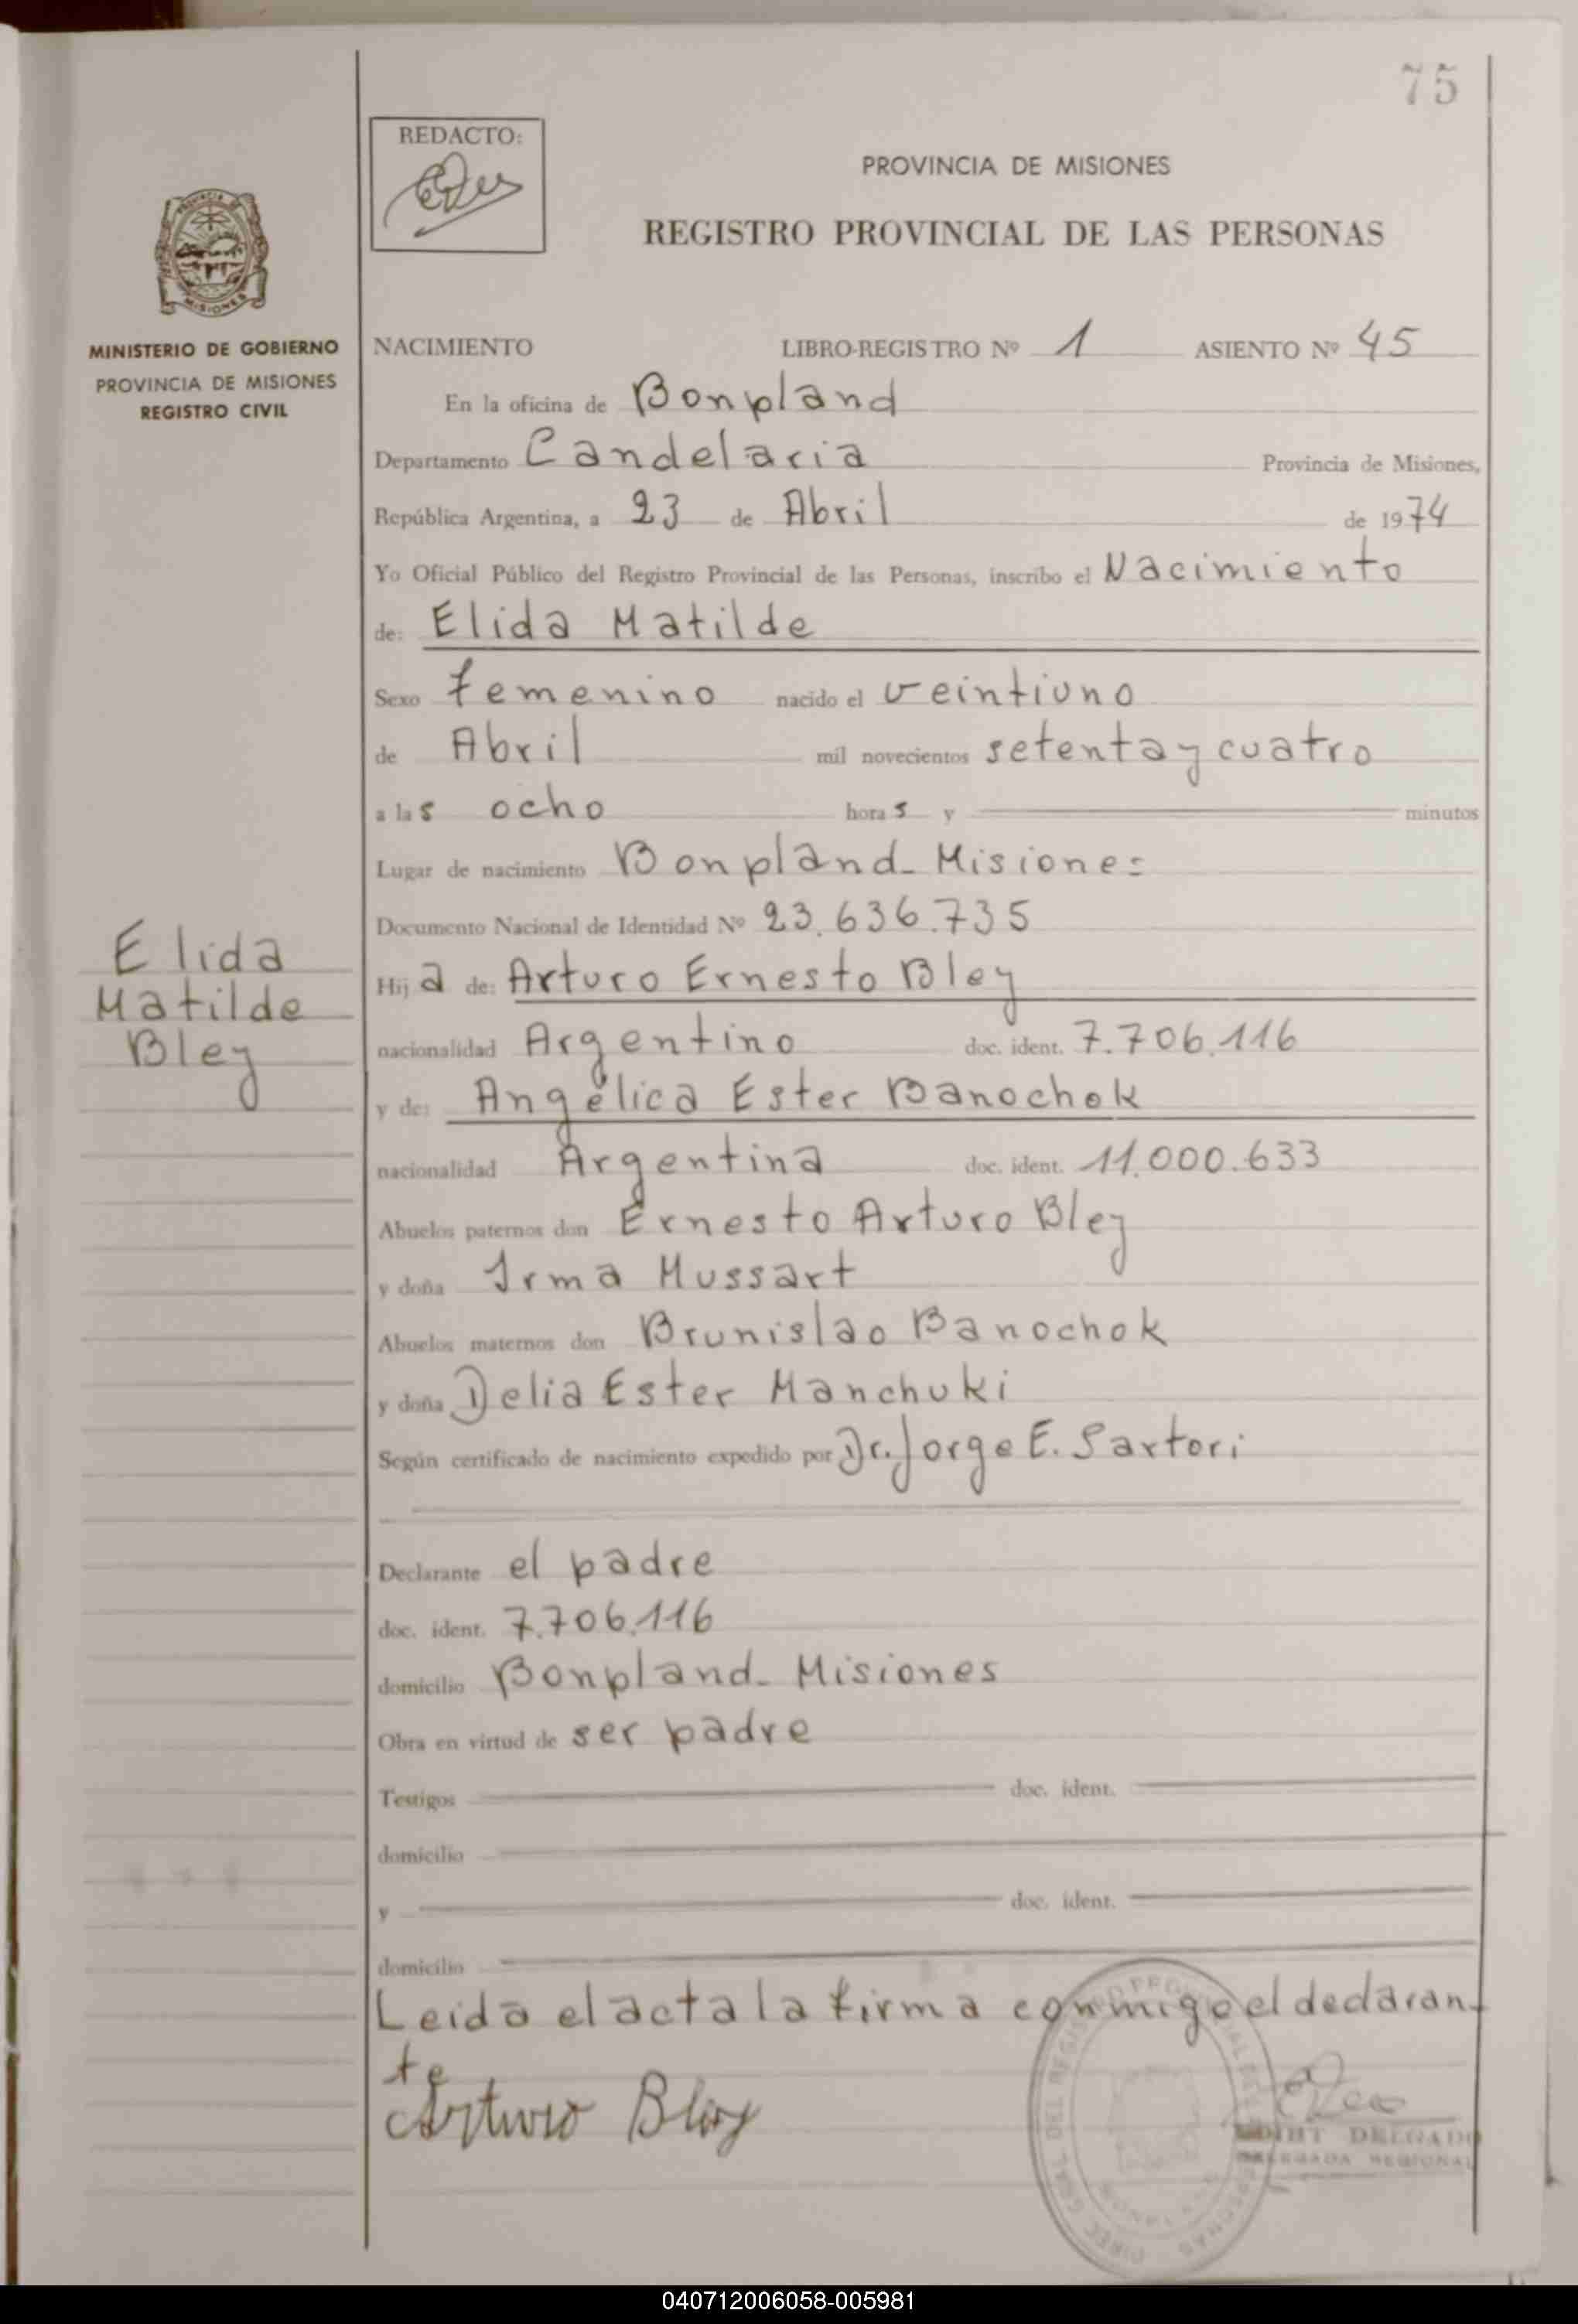 75
REDACTO:
PROVINCIA DE MISIONES
REGISTRO PROVINCIAL DE LAS PERSONAS
MISIONES
MINISTERIO DE GOBIERNO
PROVINCIA DE MISIONES
REGISTRO CIVIL
NACIMIENTO LIBRO-REGISTRO Nº 1 ASIENTO Nº 45
En la oficina de Bonpland
Departamento Candelaria Provincia de Misiones,
República Argentina, a 23 de Abril de 1974
Yo Oficial Público del Registro Provincial de las Personas, inscribo el Nacimiento
de: Elida Matilde
Sexo femenino nacido el veintiuno
de Abril mil novecientos setenta y cuatro
a las ocho horas y minutos
Lugar de nacimiento Bonpland - Misiones
Documento Nacional de Identidad Nº 23.636.735
Elida
Matilde
Bley
Hija de: Arturo Ernesto Bley
nacionalidad Argentino doc. ident. 7.706.116
y de: Angélica Ester Banochok
nacionalidad Argentina doc. ident. 11.000.633
Abuelos paternos don Ernesto Arturo Bley
y doña Irma Mussart
Abuelos maternos don Brunislao Banochok
y doña Delia Ester Manchuki
Según certificado de nacimiento expedido por Dr. Jorge E. Sartori
Declarante el padre
doc. ident. 7.706.116
domicilio Bonpland - Misiones
Obra en virtud de ser padre
Testigos doc. ident.
domicilio
y doc. ident.
domicilio
Leida el acta la firma conmigo el declaran-
te
Arturo Bley
DELGADO
REGIONAL
040712006058-005981